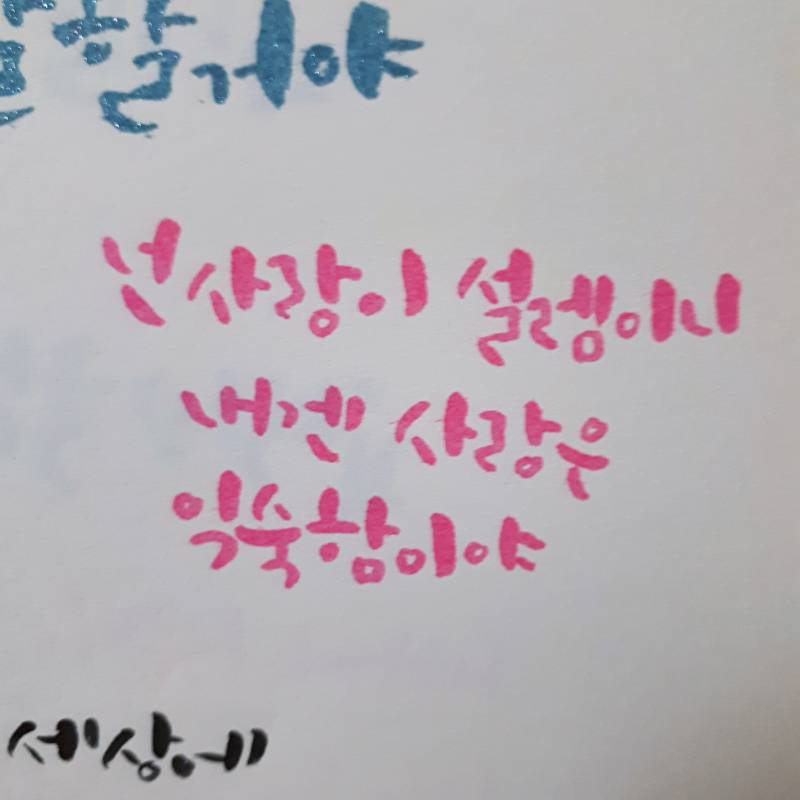 할거야
넌 사랑이 설렘이니
내겐 사랑은
익숙함이야
세상에